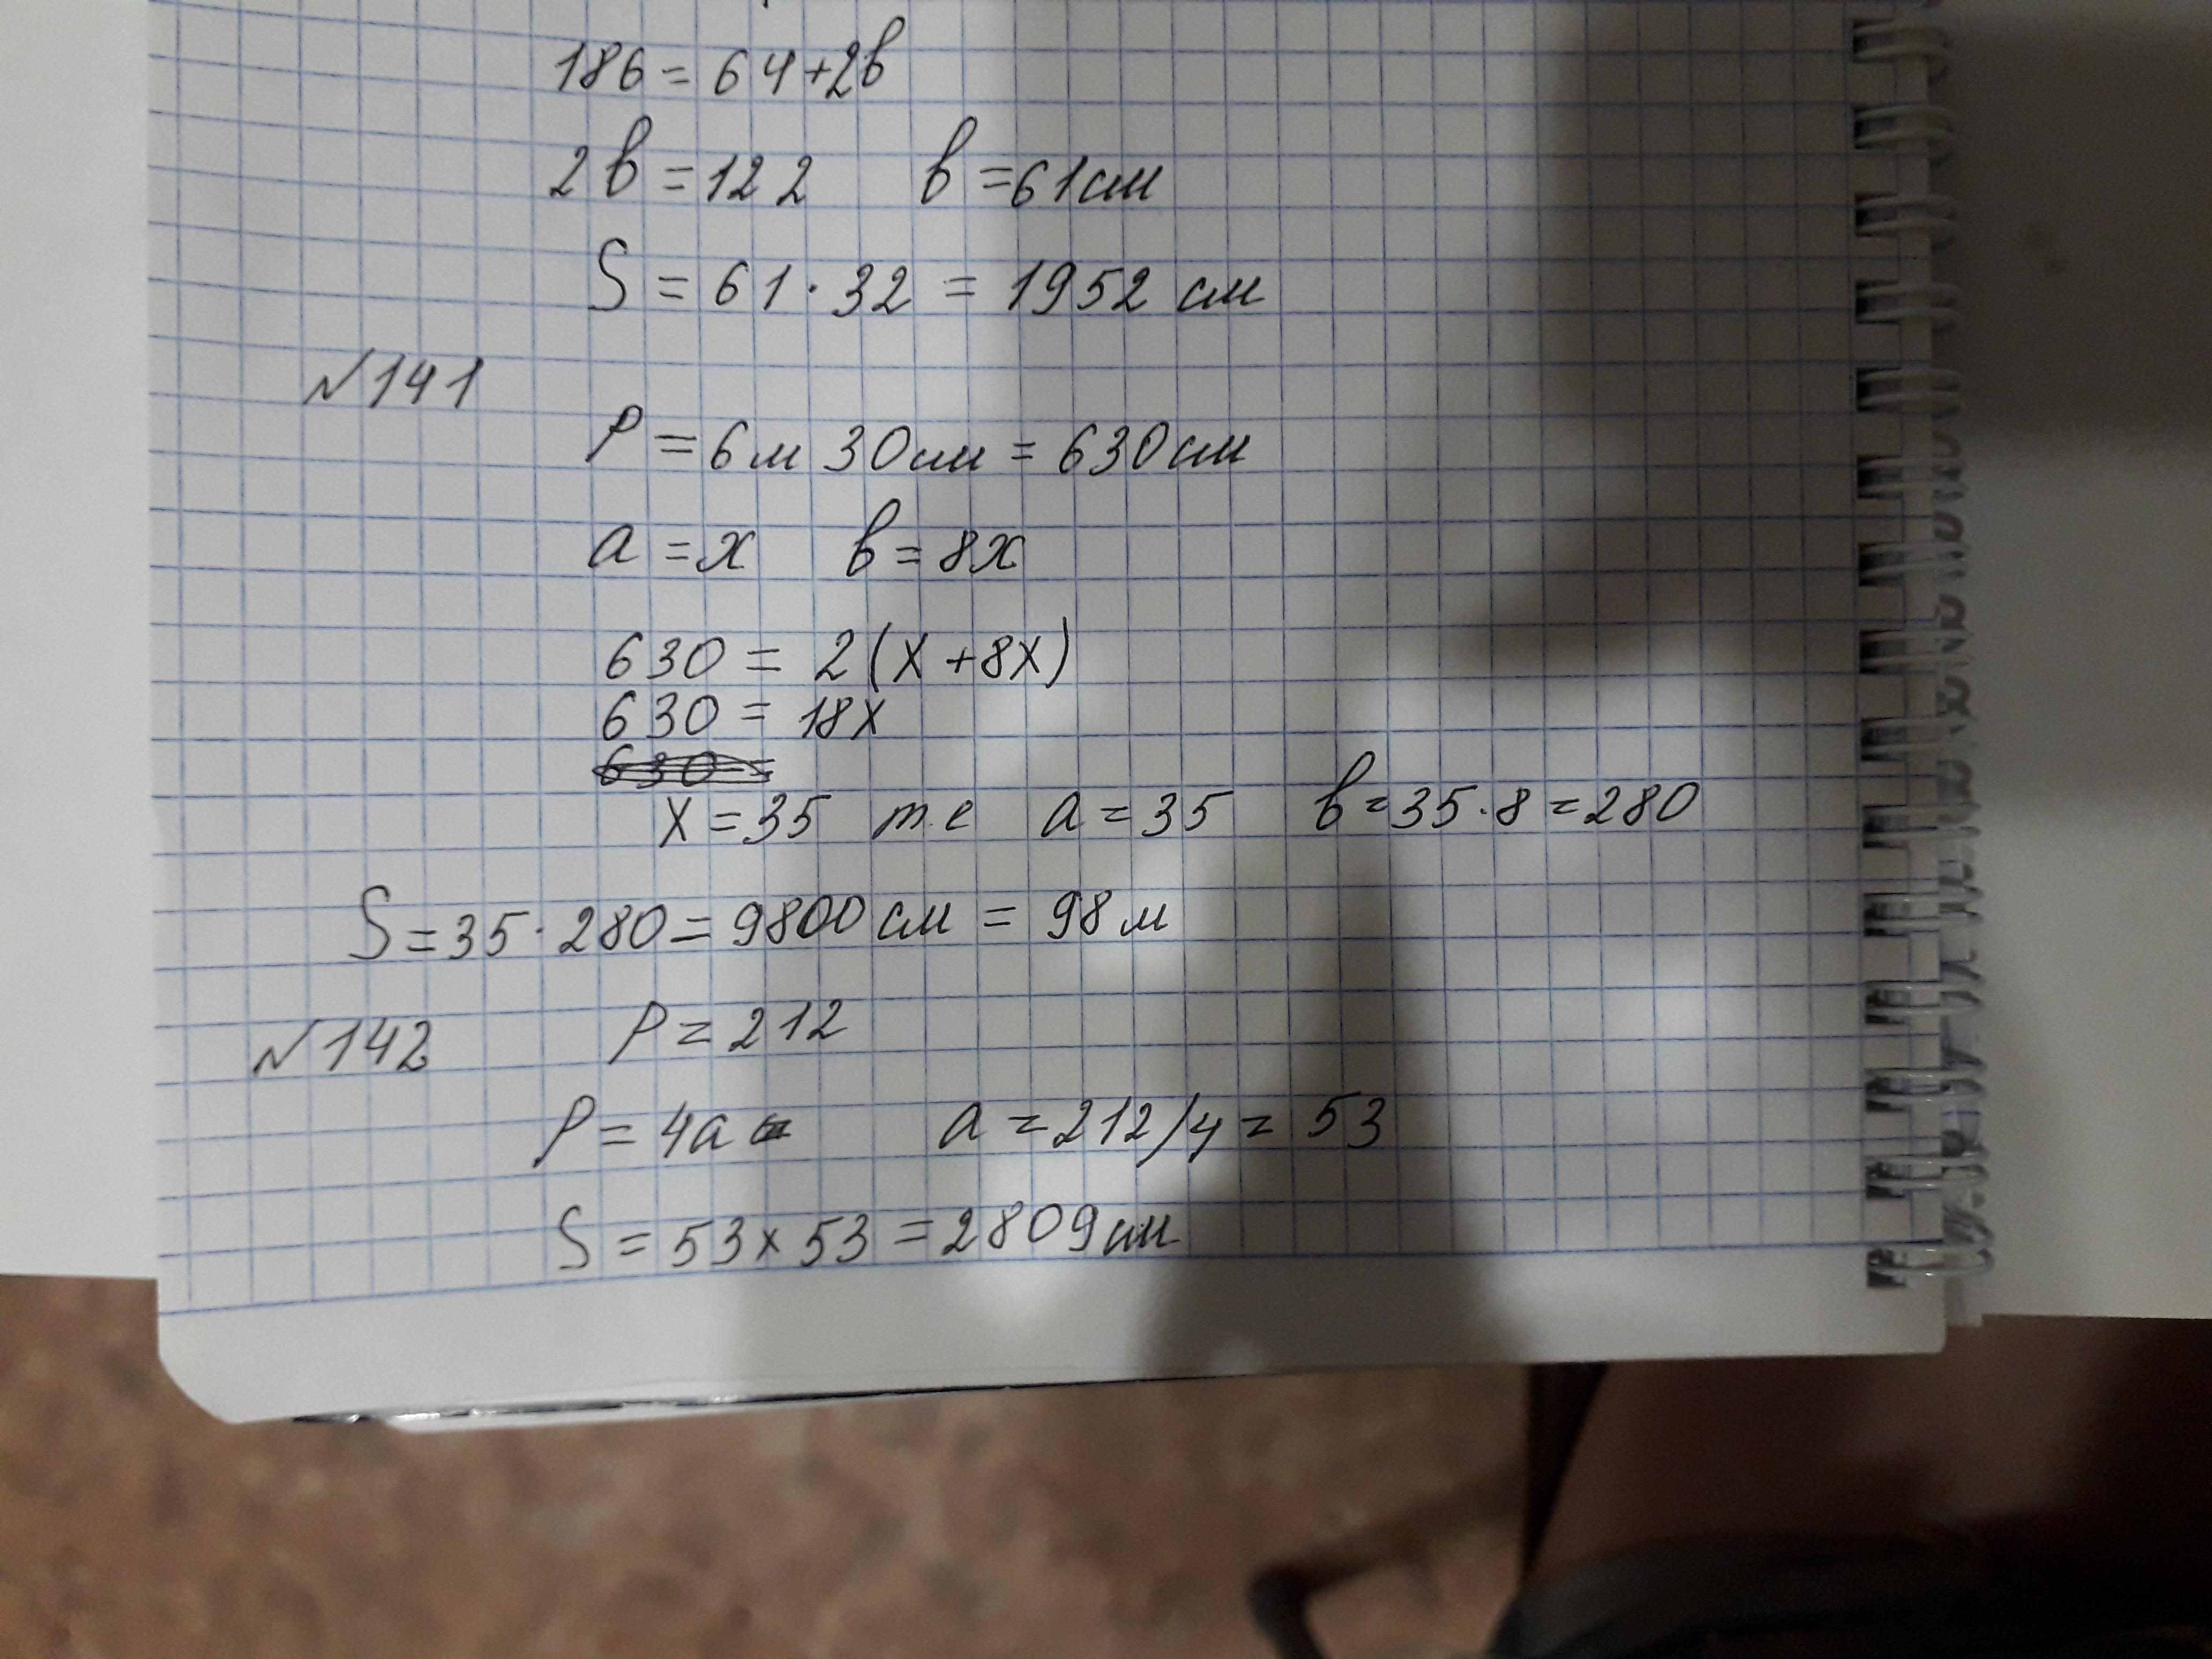 186 = 64 + 2в
2в = 122 в = 61 см
S = 61 · 32 = 1952 см
№141
P = 6 м 30 см = 630 см
a = x в = 8x
630 = 2(x + 8x)
630 = 18x
630 =
x = 35 т.е a = 35 в = 35 · 8 = 280
S = 35 · 280 = 9800 см = 98 м
№142 P = 212
P = 4a a = 212/4 = 53
S = 53 × 53 = 2809 см